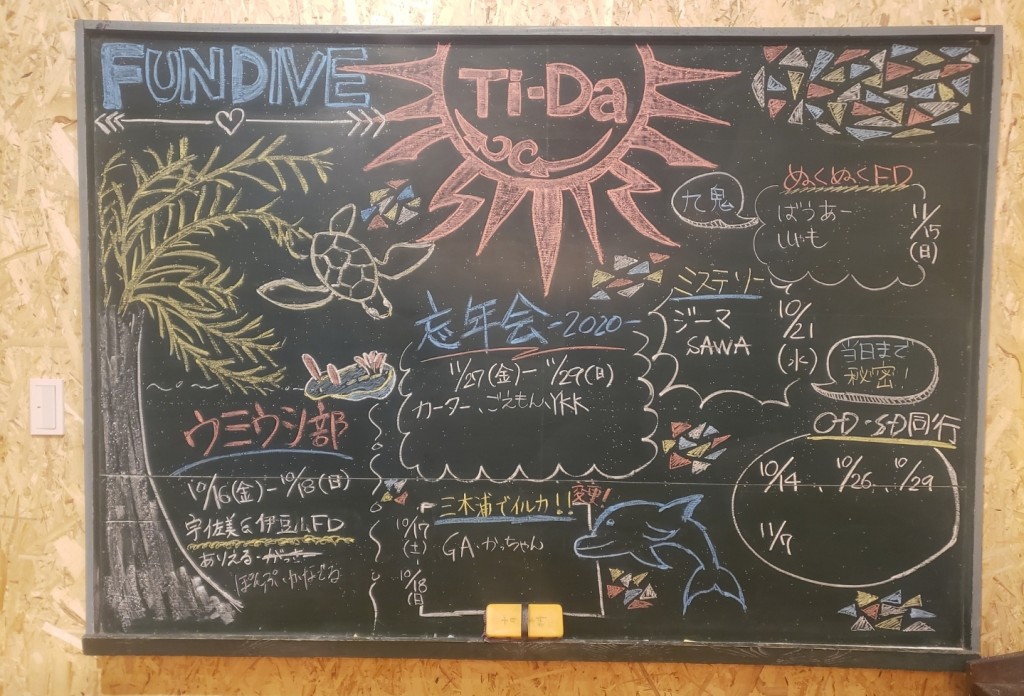 FUNDIVE
Ti-Da
九鬼
ぬくぬくFD
ばうあー
11/15
(日)
忘年会-2020-
11/27(金)-11/29(日)
カーター、ごえもん、YKK
ミステリー
ジーマ
SAWA
10/21
(水)
当日まで
秘密!
ウミウシ部
10/16(金)-10/18(日)
宇佐美&伊豆山FD
ありえる・がっきー
ぽんぷ・かなでる
三木浦でイルカ!!
変更!
10/17
(土)
10/18
(日)
GA、かっちゃん
OD・SD同行
10/14、10/26、10/29
11/7